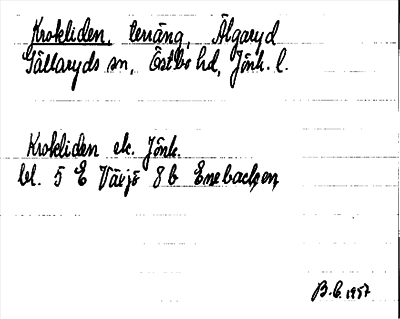 Krokliden, terräng, Älgaryd
Gällaryds sn, Östbo hd, Jönk. l.
Krokliden ek. Jönk.
bl. 5 E Växjö 8 b Enebacken
B.G. 1957